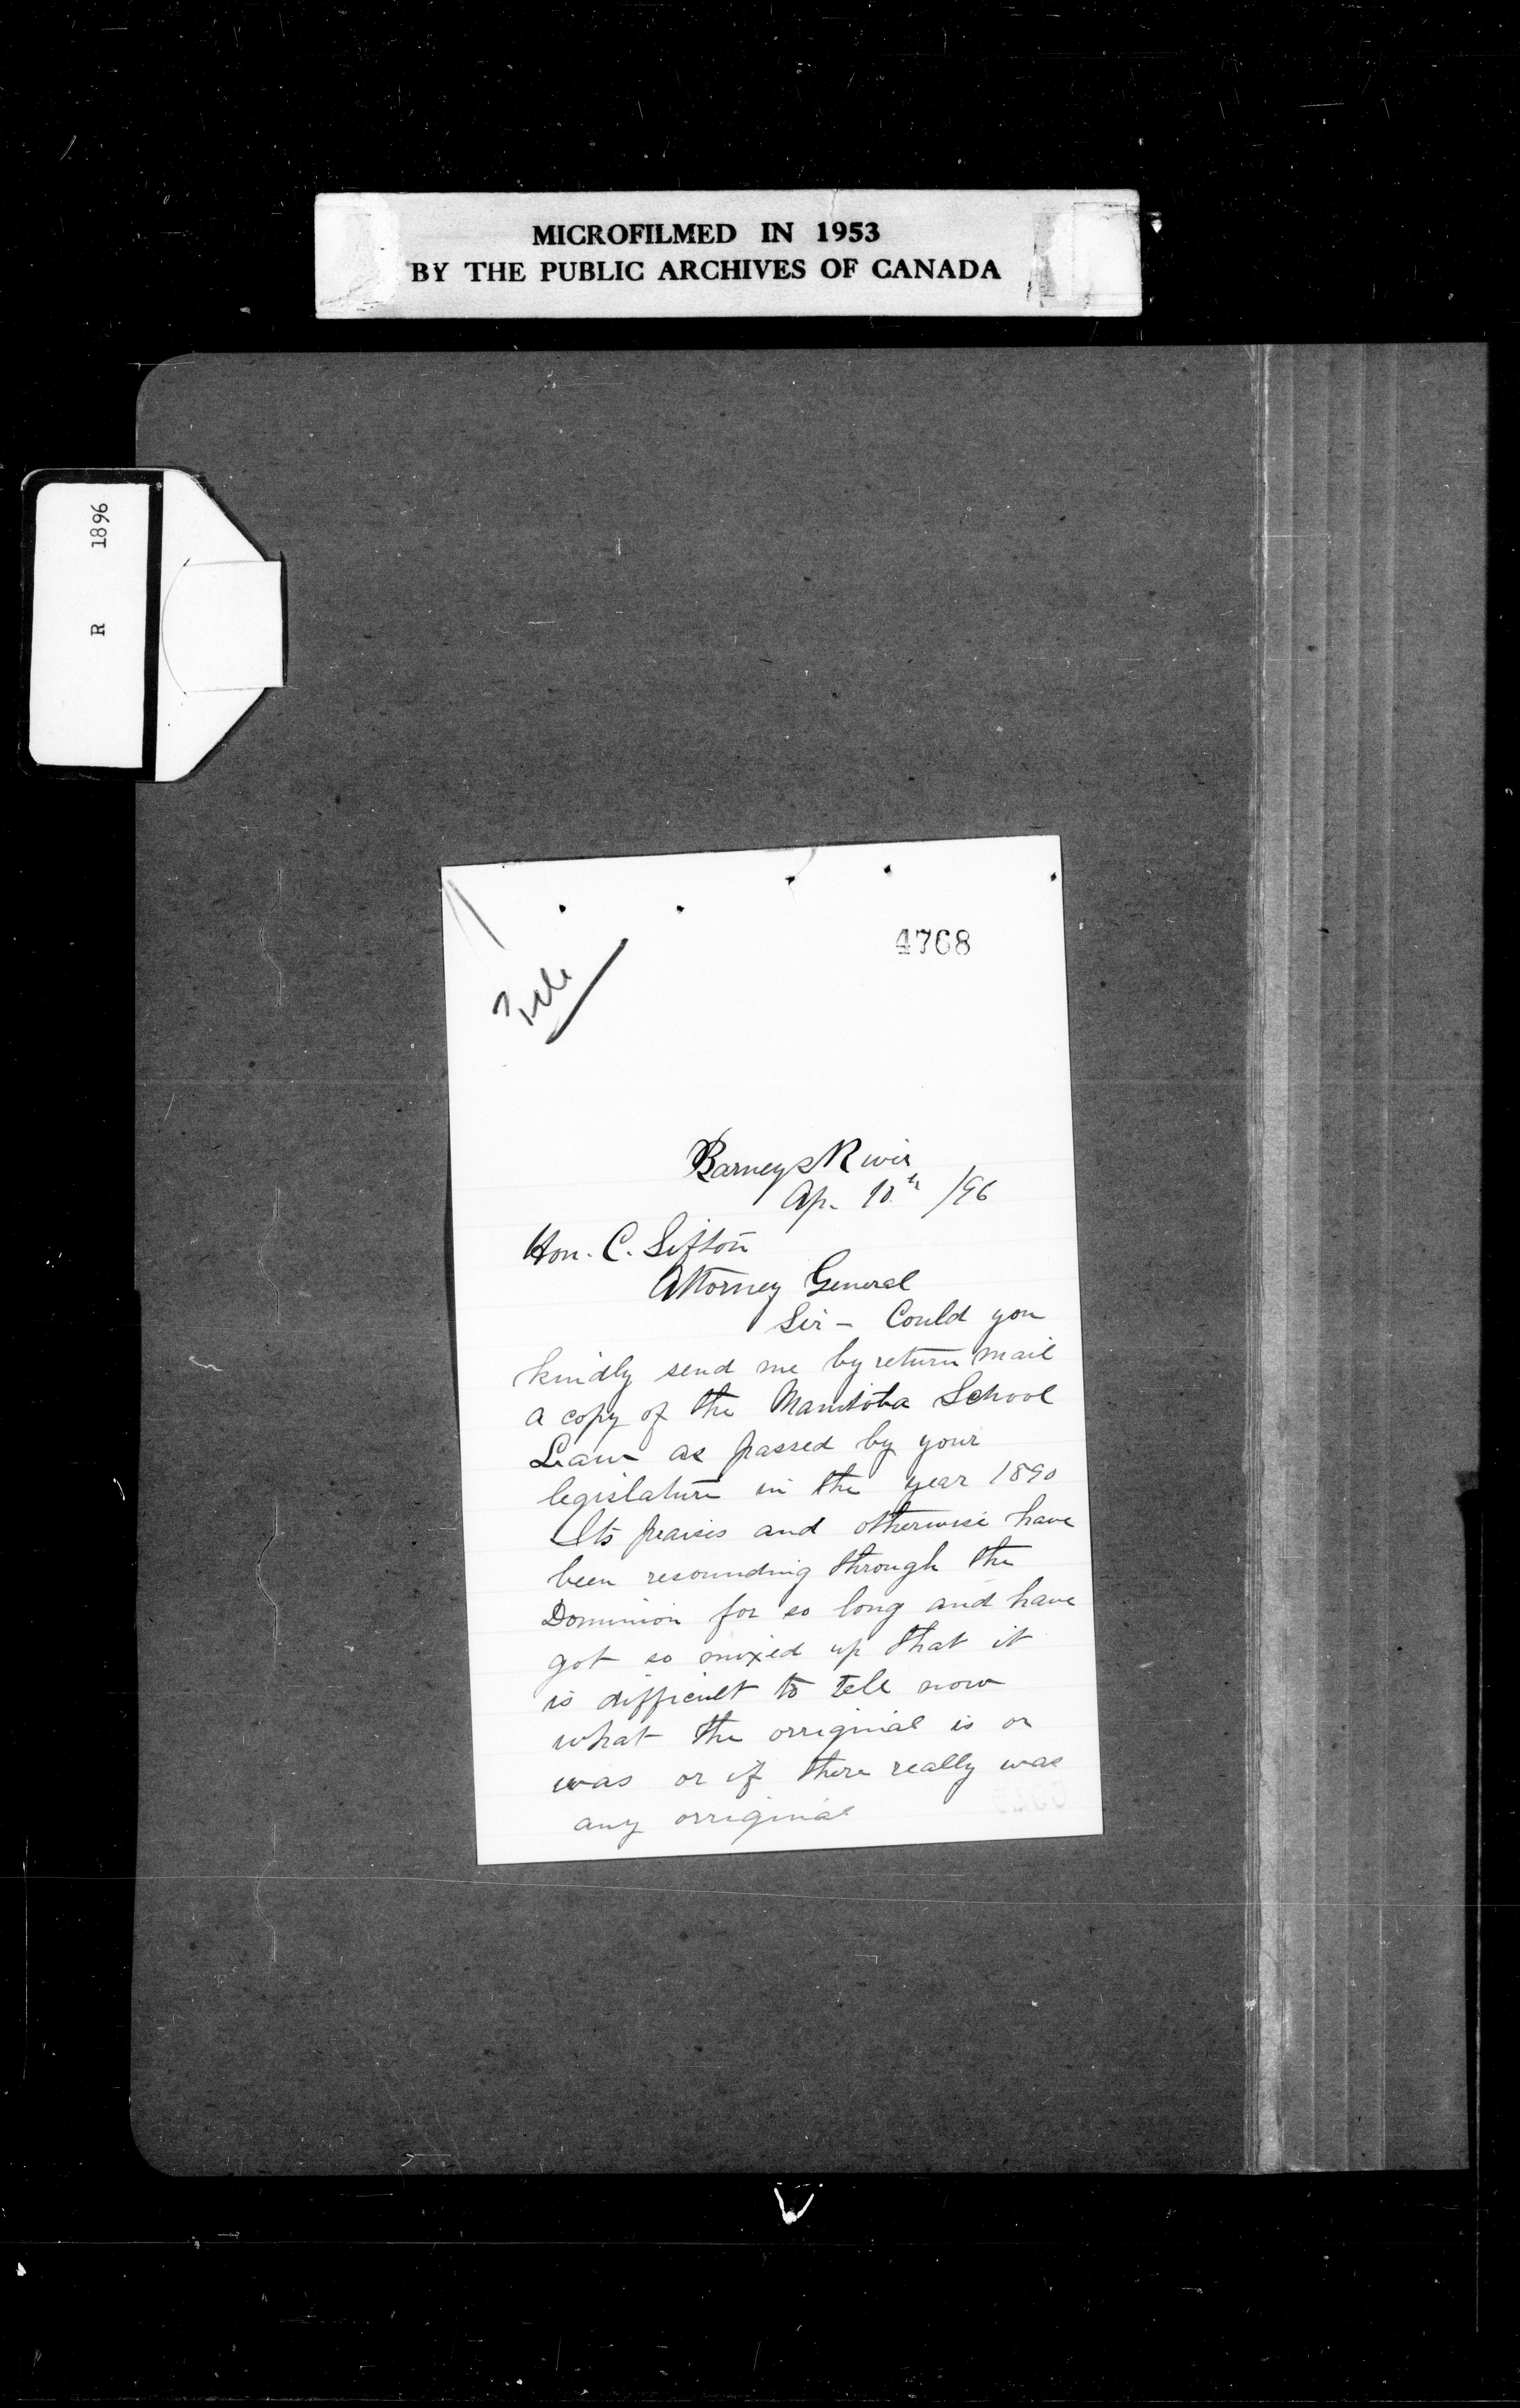 MICROFILMED IN 1953
BY THE PUBLIC ARCHIVES OF CANADA
R 1896
4768
File
Barneys River
Ap. 10th /96
Hon. C. Sifton
Attorney General
Sir - Could you
kindly send me by return mail
a copy of the Manitoba School
Law as passed by your
legislature in the year 1890
Its praises and otherwise have
been resounding through the
Dominion for so long and have
got so mixed up that it
is difficult to tell now
what the orriginal is or
was or if there really was
any orriginal